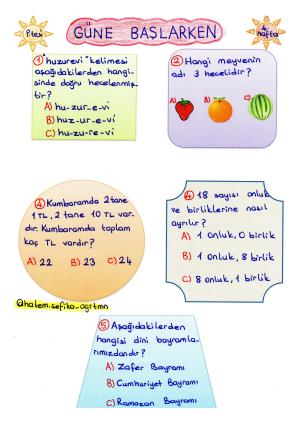 P.tesi
GÜNE BAŞLARKEN
4.
hafta
1) "huzurevi" kelimesi
aşağıdakilerden hangi-
sinde doğru hecelenmiş-
tir?
A) hu-zur-e-vi
B) huz-ur-e-vi
C) hu-zu-re-vi
2) Hangi meyvenin
adı 3 hecelidir?
A)
B)
C)
3) Kumbaramda 2 tane
1 TL, 2 tane 10 TL var-
dır. Kumbaramda toplam
kaç TL vardır?
A) 22 B) 23 C) 24
4) 18 sayısı onluk
ve birliklerine nasıl
ayrılır?
A) 1 onluk, 0 birlik
B) 1 onluk, 8 birlik
C) 8 onluk, 1 birlik
@halem.sefika_ogrtmn
5) Aşağıdakilerden
hangisi dini bayramla-
rımızdandır?
A) Zafer Bayramı
B) Cumhuriyet Bayramı
C) Ramazan Bayramı